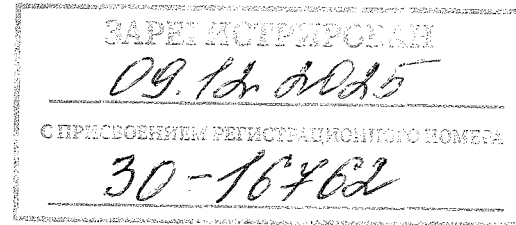 ЗАРЕГИСТРИРОВАН
09.12.2025
С ПРИСВОЕНИЕМ РЕГИСТРАЦИОННОГО НОМЕРА
30-16762